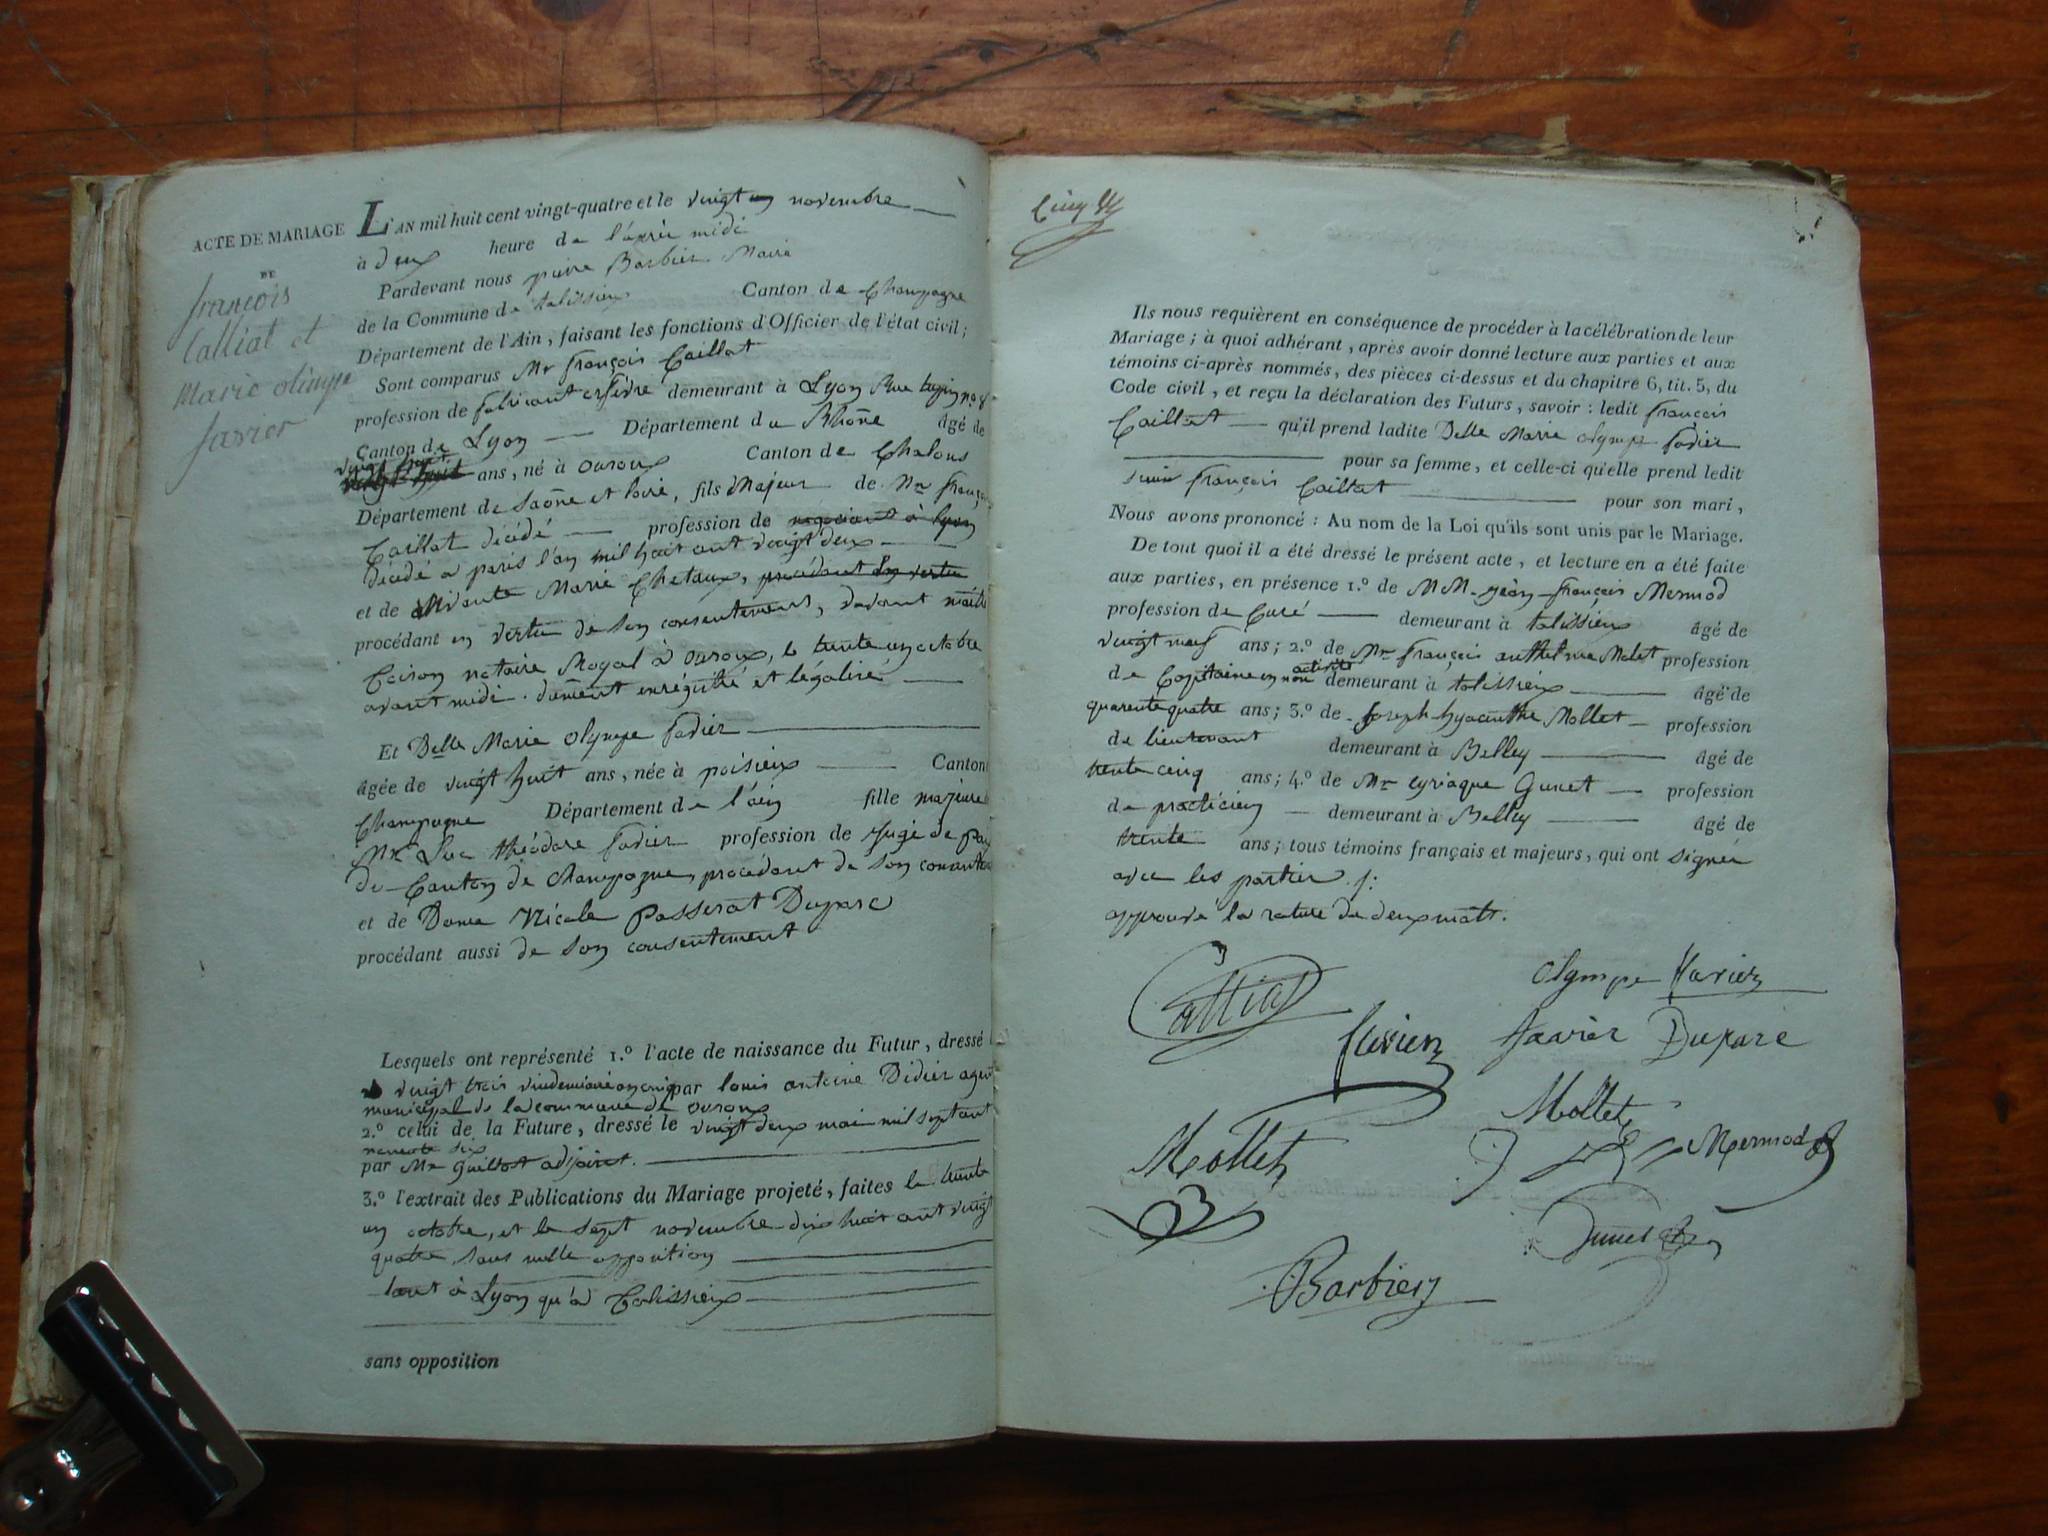 ACTE DE MARIAGE
DE
françois
Calliat et
Marie olimpe
favier
L'AN mil huit cent vingt-quatre et le vingt un novembre
à deux heure de l'après midi
Pardevant nous pierre Barbier Maire
de la Commune de talissieu Canton de Champagne
Département de l'Ain, faisant les fonctions d'Officier de l'état civil;
Sont comparus Mr françois Caillat
profession de fabricant orfèvre demeurant à Lyon Rue tupin n° 8
Canton de Lyon Département du Rhône âgé de
vingt huit ans, né à ouroux Canton de Chalons
Département de Saône et loire, fils Majeur de Mr françois
Caillat décédé profession de negociant à lyon
décédé a paris l'an mil huit cent vingt deux
et de vivante Marie Chetaux, procédant en vertu
procédant en vertu de son consentement, devant maitre
notaire Royal à ouroux, le trente un octobre
avant midi. dûment enrégistré et légalisé
Et Delle Marie Olympe favier
âgée de vingt huit ans, née à poisieux Canton
Champagne Département de l'ain fille majeure
Mr Luc théodore favier profession de Juge de Paix
du Canton de Champagne, procédant de son consentement
et de Dame Nicole Passerat Duparc
procédant aussi de son consentement
Lesquels ont représenté 1.° l'acte de naissance du Futur, dressé
vingt trois vindemiaire an cinq par louis antoine Didier agent
municipal de la commune de ouroux
2.° celui de la Future, dressé le vingt deux mai mil sept cent
nonante six
par Mr Guillot adjoint.
3.° l'extrait des Publications du Mariage projeté, faites le trente
un octobre, et le sept novembre dix huit cent vingt
quatre sans nulle opposition
tant à Lyon qu'à Talissieux
sans opposition
Ils nous requièrent en conséquence de procéder à la célébration de leur
Mariage; à quoi adhérant, après avoir donné lecture aux parties et aux
témoins ci-après nommés, des pièces ci-dessus et du chapitre 6, tit. 5, du
Code civil, et reçu la déclaration des Futurs, savoir: ledit françois
Caillat qu'il prend ladite Delle Marie olympe favier
pour sa femme, et celle-ci qu'elle prend ledit
françois Caillat pour son mari,
Nous avons prononcé: Au nom de la Loi qu'ils sont unis par le Mariage.
De tout quoi il a été dressé le présent acte, et lecture en a été faite
aux parties, en présence 1.° de MM. jean françois Mermod
profession de Curé demeurant à talissieux âgé de
vingt neuf ans; 2.° de Mr françois anthelme Molet profession
de Capitaine en non activité demeurant à talissieux âgé de
quarente quatre ans; 3.° de Joseph hyacinthe Mollet profession
de lieutenant demeurant à Belley âgé de
trente cinq ans; 4.° de Mr Cyriaque Gunet profession
de practicien demeurant à Belley âgé de
trente ans; tous témoins français et majeurs, qui ont signé
avec les parties
approuvé la rature de deux mots.
Calliat
Olympe favier
favier
favier Duparc
Mollet
Mollet
Mermod
Barbier